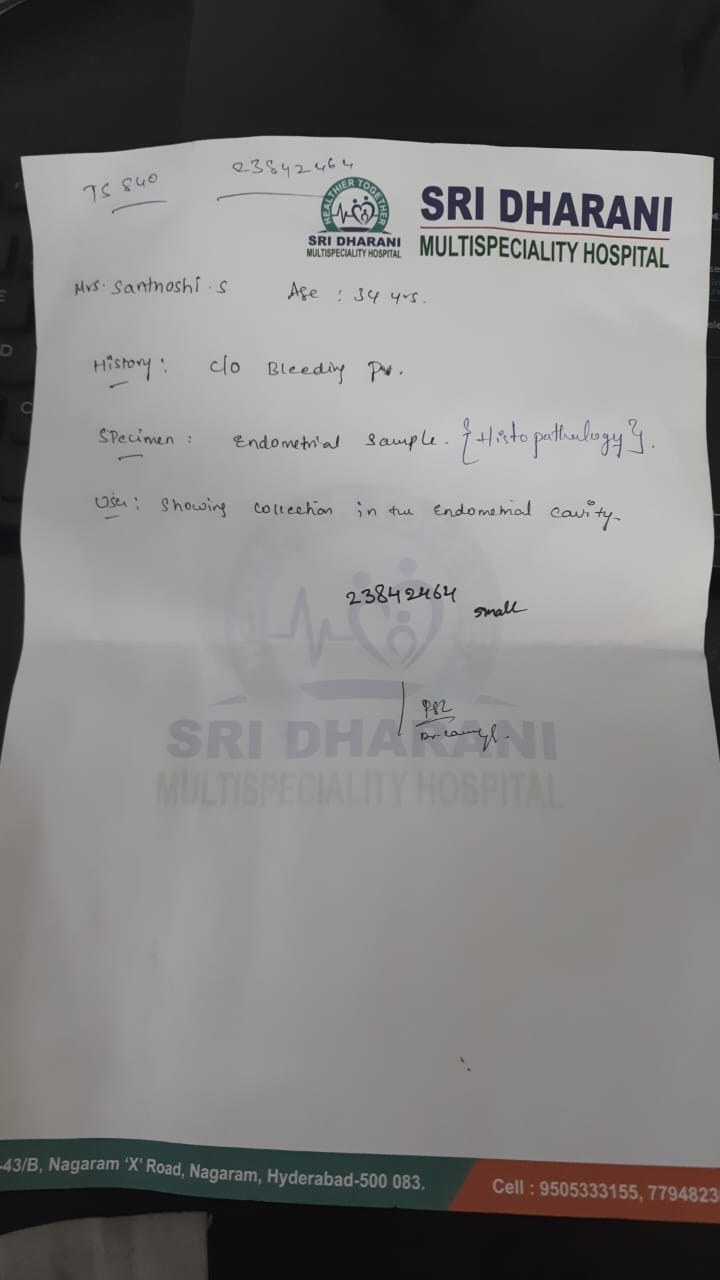 TS 840 23842464
HEALTHIER TOGETHER
SRI DHARANI
MULTISPECIALITY HOSPITAL
SRI DHARANI
MULTISPECIALITY HOSPITAL
Mrs. Santhoshi . S Age : 34 yrs.
History : c/o Bleeding Pv.
Specimen : Endometrial Sample. {Histopathology}.
USG : Showing collection in the Endometrial cavity.
23842464
small
SRI DHARANI
MULTISPECIALITY HOSPITAL
-43/B, Nagaram 'X' Road, Nagaram, Hyderabad-500 083.
Cell : 9505333155, 7794823